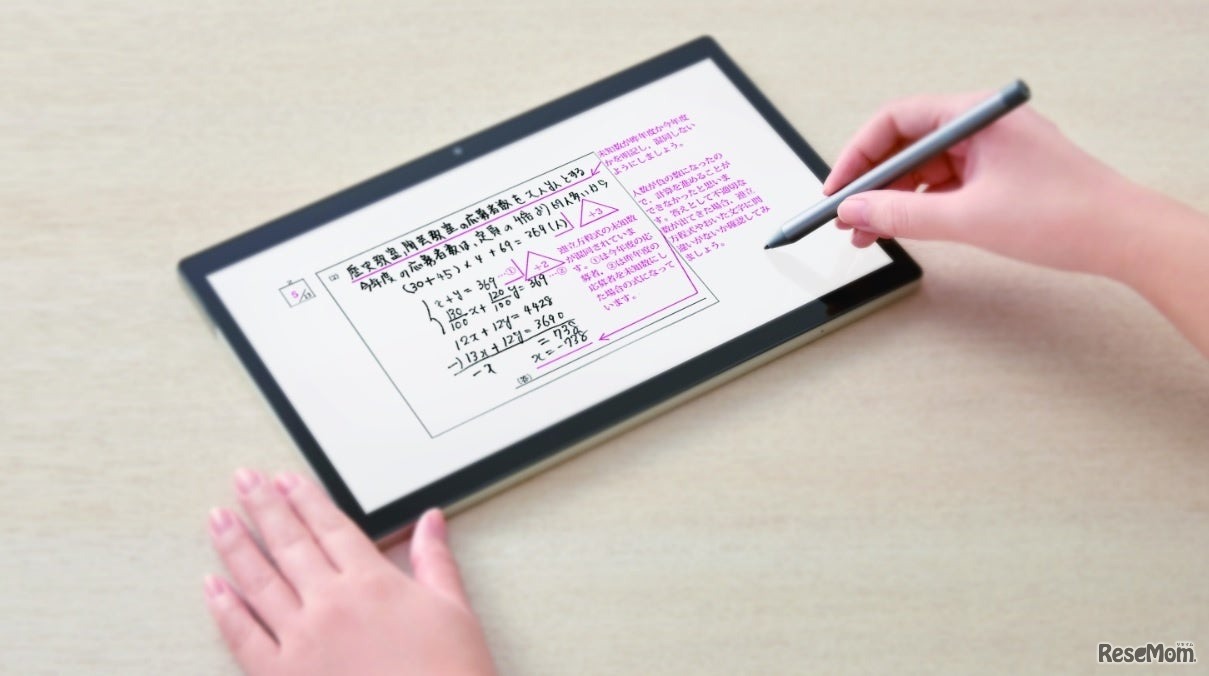 5
(2)
歴史教室、陶芸教室の応募者数をx人、y人とする
今年度の応募者数は、定員の4倍より69人多いから
(30+45)×4+69=369(人)
+3
x+y=369 …①
130/100x+120/100y=369 …②
+2
12x+12y=4428
-)13x+12y=3690
-x =738
x=-738
(答)
未知数が昨年度か今年度
かを明記し、混同しない
ようにしましょう。
連立方程式の未知数
が混同されていま
す。①は今年度の応
募者、②は昨年度の
応募者を未知数にし
た場合の式になって
います。
人数が負の数になったの
で、計算を進めることが
できなかったと思いま
す。答えとして不適切な
数が出てきた場合、連立
方程式やおいた文字に間
違いがないか確認してみ
ましょう。
ReseMom